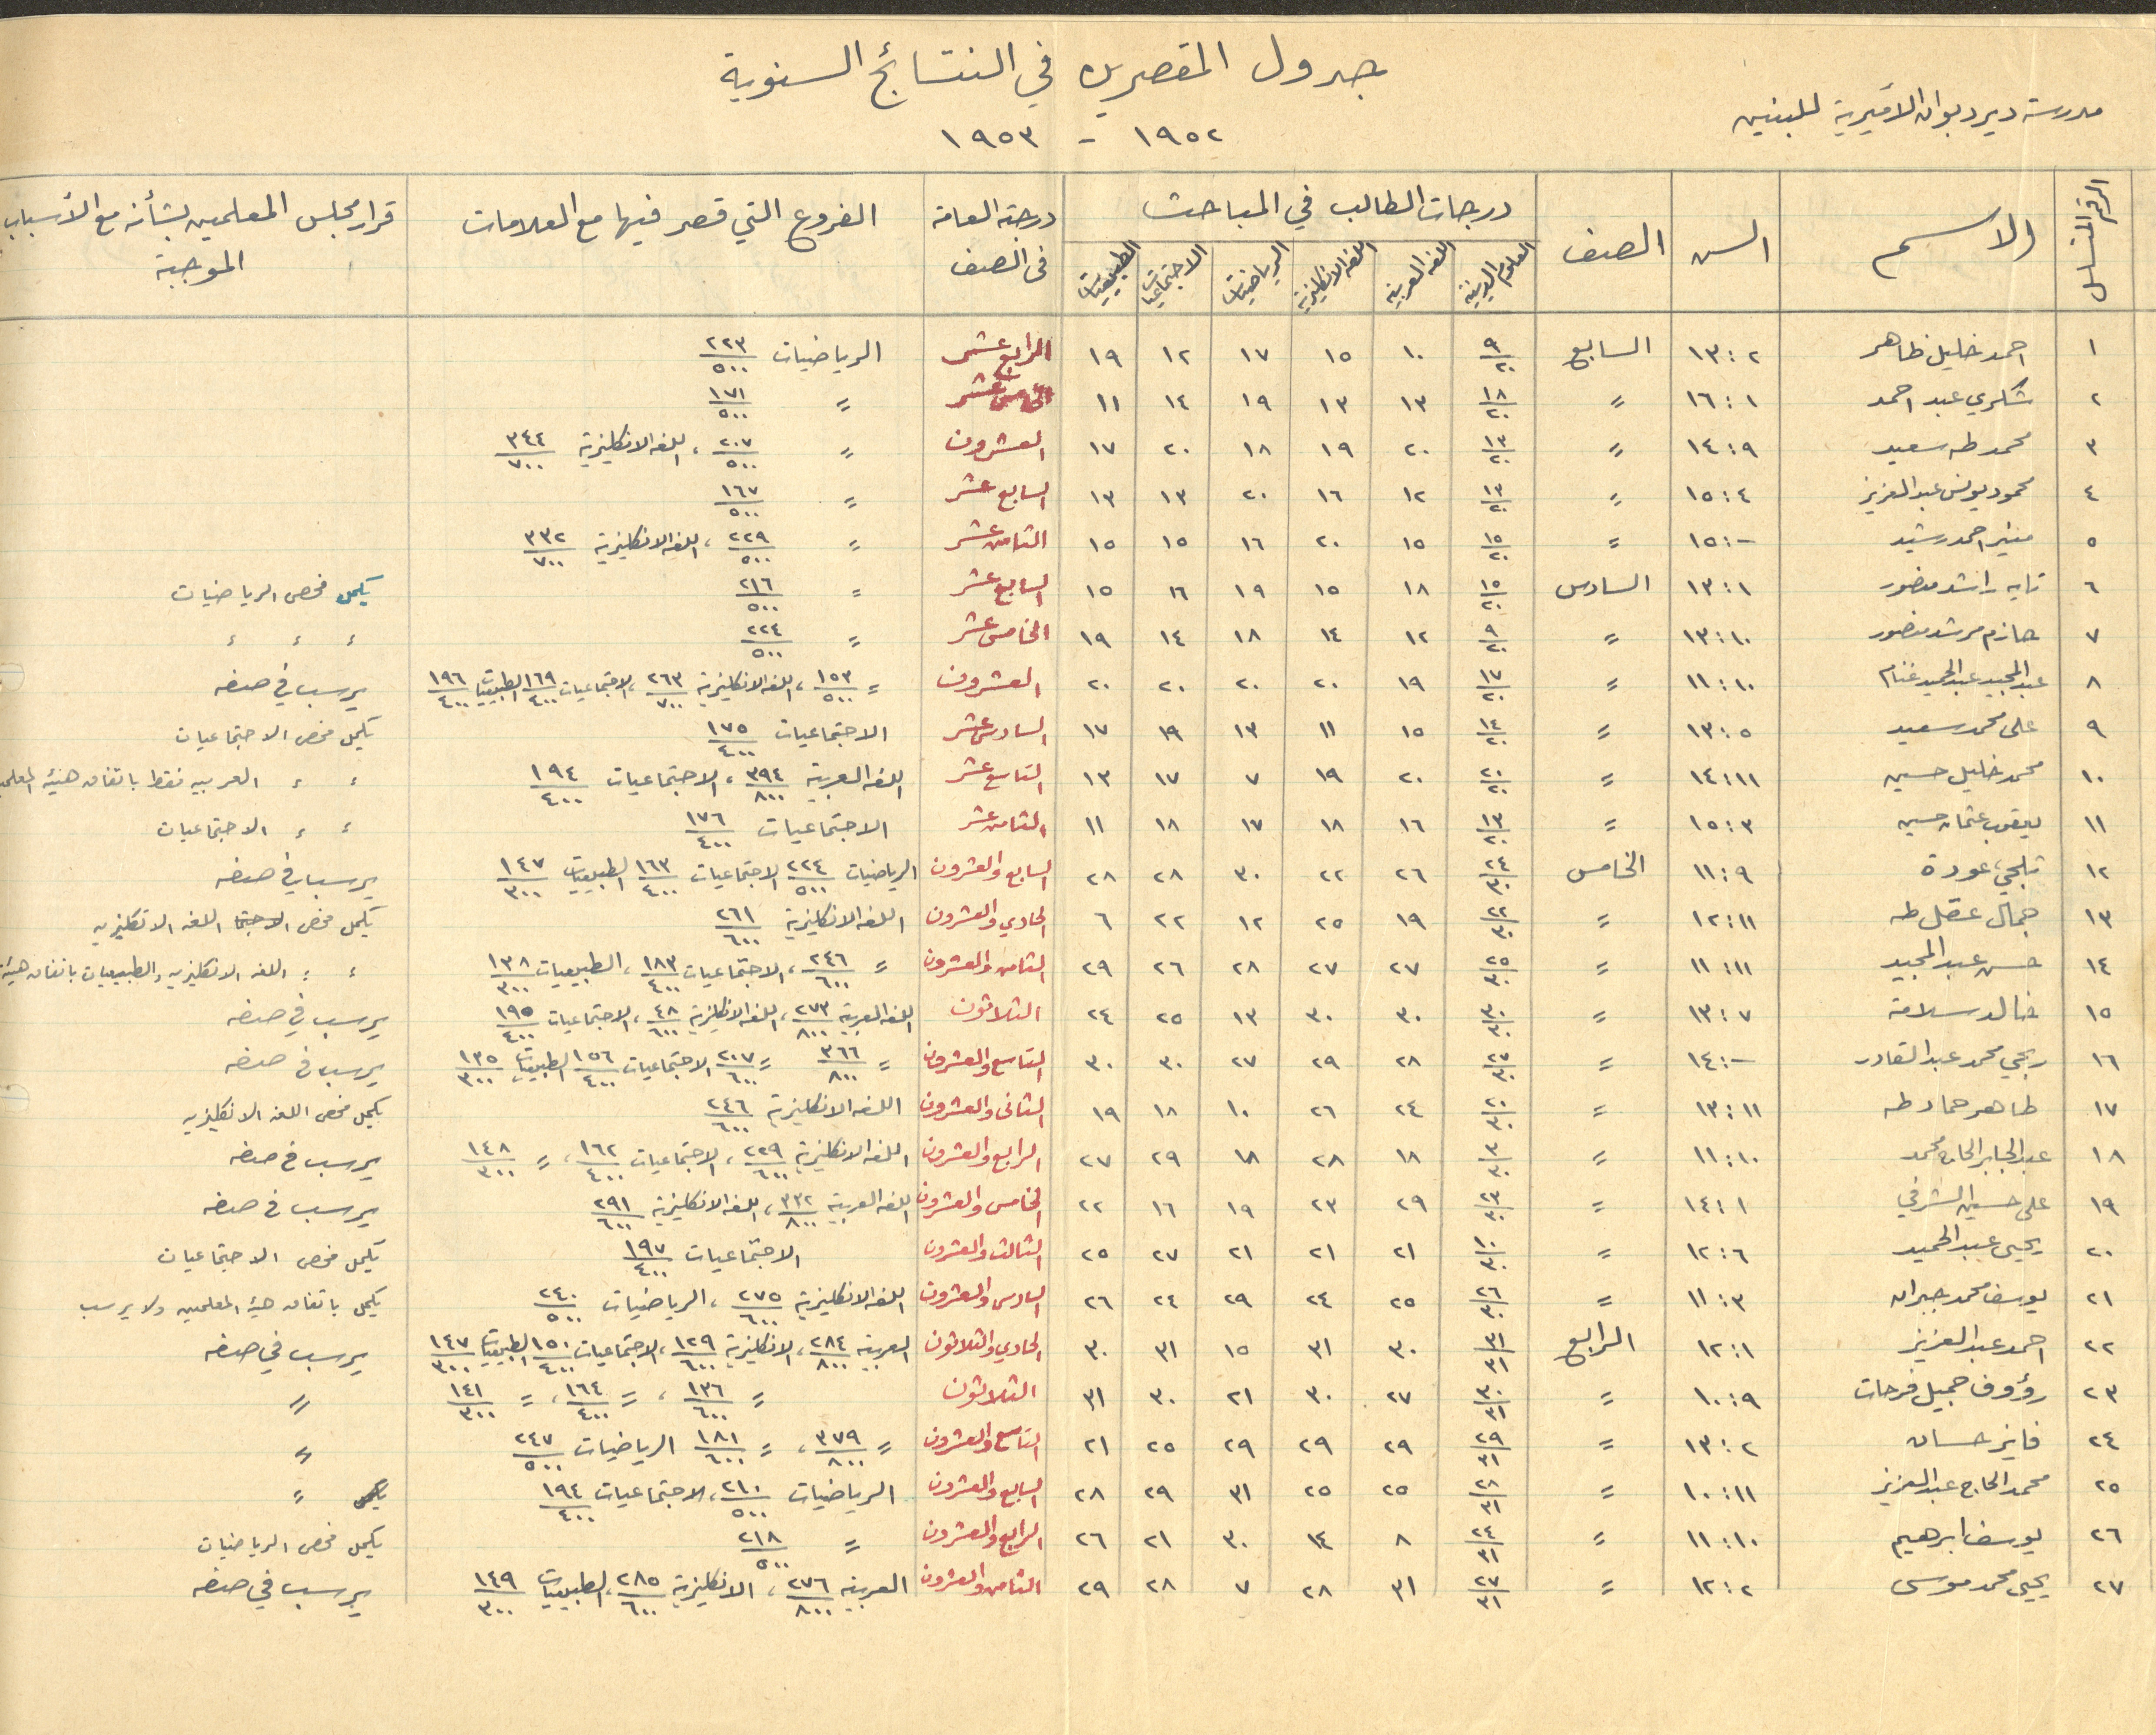 جدول المقصرين في النتائج السنوية
مدرسة دير ديوان الأميرية للبنين
١٩٥٢ - ١٩٥٣
الرقم المتسلسل الاسم السن الصف درجات الطالب في المباحث درجته العامة في الصف الفروع التي قصر فيها مع العلامات قرار مجلس المعلمين بشأنه مع الأسباب الموجبة
العلوم الدينية اللغة العربية اللغة الانكليزية الرياضيات الاجتماعيات الطبيعيات
١ احمد خليل ظاهر ١٣:٢ السابع ٩/٢٠ ١٠ ١٥ ١٧ ١٢ ١٩ الرابع عشر الرياضيات ٢٢٣/٥٠٠
٢ شكري عبد احمد ١٦:١ = ١٨/٢٠ ١٣ ١٣ ١٩ ١٤ ١١ الخامس عشر = ١٧١/٥٠٠
٣ محمد طه سعيد ١٤:٩ = ١٣/٢٠ ٢٠ ١٩ ١٨ ٢٠ ١٧ العشرون = ٢٠٧/٥٠٠ ، اللغة الانكليزية ٣٤٤/٧٠٠
٤ محمود يونس عبد العزيز ١٥:٤ = ١٣/٢٠ ١٢ ١٦ ٢٠ ١٣ ١٣ السابع عشر = ١٦٧/٥٠٠
٥ منير احمد رشيد ١٥:- = ١٥/٢٠ ١٥ ٢٠ ١٦ ١٥ ١٥ الثامن عشر = ٢٢٩/٥٠٠ ، اللغة الانكليزية ٣٣٢/٧٠٠
٦ نايه راشد منصور ١٣:١ السادس ١٥/٢٠ ١٨ ١٥ ١٩ ١٦ ١٥ السابع عشر = ٢١٦/٥٠٠ يكمل فحص الرياضيات
٧ حازم مرشد منصور ١٣:١٠ = ٩/٢٠ ١٢ ١٤ ١٨ ١٤ ١٩ الخامس عشر = ٢٢٤/٥٠٠ = = =
٨ عبد المجيد عبد الحميد غنام ١١:١٠ = ١٧/٢٠ ١٩ ٢٠ ٢٠ ٢٠ ٢٠ العشرون = ١٥٣/٥٠٠ ، اللغة الانكليزية ٢٦٣/٧٠٠ ، الاجتماعيات ١٦٩/٤٠٠ الطبيعيات ١٩٦/٤٠٠ يرسب في صفه
٩ علي محمد سعيد ١٣:٥ = ١٤/٢٠ ١٥ ١١ ١٣ ١٩ ١٧ السادس عشر الاجتماعيات ١٧٥/٤٠٠ يكمل فحص الاجتماعيات
١٠ محمد خليل حسين ١٤:١١ = ٢٠/٢٠ ٢٠ ١٩ ٧ ١٧ ١٣ التاسع عشر اللغة العربية ٣٩٤/٨٠٠ ، الاجتماعيات ١٩٤/٤٠٠ = = العربيه فقط باتفاق هيئة
١١ يعقوب عثمان حسين ١٥:٣ = ١٣/٢٠ ١٦ ١٨ ١٧ ١٨ ١١ الثامن عشر الاجتماعيات ١٧٦/٤٠٠ = = الاجتماعيات
١٢ تلجي عودة ١١:٩ الخامس ٢٤/٣٠ ٢٦ ٢٢ ٣٠ ٢٨ ٢٨ السابع والعشرون الرياضيات ٢٢٤/٥٠٠ الاجتماعيات ١٦٣/٤٠٠ الطبيعيات ١٤٧/٣٠٠ يرسب في صفه
١٣ جمال عقل طه ١٢:١١ = ٢٢/٣٠ ١٩ ٢٥ ١٢ ٢٢ ٦ الحادي والعشرون اللغة الانكليزية ٢٦١/٦٠٠ يكمل فحص الاجتما اللغة الانكليزيه
١٤ حسن عبد المجيد ١١:١١ = ٢٥/٣٠ ٢٧ ٢٧ ٢٨ ٢٦ ٢٩ الثامن والعشرون = ٢٤٦/٦٠٠ ، الاجتماعيات ١٨٣/٤٠٠ ، الطبيعيات ١٣٨/٣٠٠ = = اللغة الانكليزيه والطبيعيات باتفاق هيئة
١٥ خالد سلامة ١٣:٧ = ٣٠/٣٠ ٣٠ ٣٠ ١٣ ٢٥ ٢٤ الثلاثون اللغة العربية ٢٧٣/٨٠٠ ، اللغة الانكليزية ٤٨/٦٠٠ ، الاجتماعيات ١٩٥/٤٠٠ يرسب في صفه
١٦ ربحي محمد عبد القادر ١٤:- = ٢٧/٣٠ ٢٨ ٢٩ ٢٧ ٣٠ ٣٠ التاسع والعشرون = ٣٦٦/٨٠٠ = ٢٠٧/٦٠٠ الاجتماعيات ١٥٦/٤٠٠ الطبيعيات ١٣٥/٣٠٠ يرسب في صفه
١٧ طاهر حماد طه ١٣:١١ = ٢٠/٣٠ ٢٤ ٢٦ ١٠ ١٨ ١٩ الثاني والعشرون اللغة الانكليزية ٢٤٦/٦٠٠ يكمل فحص اللغة الانكليزيه
١٨ عبد الجابر الحاج محمد ١١:١٠ = ٣/٣٠ ١٨ ٢٨ ١٨ ٢٩ ٢٧ الرابع والعشرون اللغة الانكليزية ٢٢٩/٦٠٠ ، الاجتماعيات ١٦٢/٤٠٠ ، = ١٤٨/٣٠٠ يرسب في صفه
١٩ علي حسين الشرفي ١٤:١ = ٢٣/٣٠ ٢٩ ٢٣ ١٩ ١٦ ٢٢ الخامس والعشرون اللغة العربية ٣٣٢/٨٠٠ ، اللغة الانكليزية ٢٩١/٦٠٠ يرسب في صفه
٢٠ يحيى عبد الحميد ١٢:٦ = ١٠/٣٠ ٢١ ٢١ ٢١ ٢٧ ٢٥ الثالث والعشرون الاجتماعيات ١٩٧/٤٠٠ يكمل فحص الاجتماعيات
٢١ يوسف محمد جبران ١١:٣ = ٢٦/٣٠ ٢٥ ٢٤ ٢٩ ٢٤ ٢٦ السادس والعشرون اللغة الانكليزية ٢٧٥/٦٠٠ ، الرياضيات ٢٤٠/٥٠٠ يكمل باتفاق هيئة المعلمين ولا يرسب
٢٢ احمد عبد العزيز ١٢:١ الرابع ٣١/٣١ ٣٠ ٣١ ١٥ ٣١ ٣٠ الحادي والثلاثون العربية ٢٨٤/٨٠٠ ، الانكليزية ١٢٩/٦٠٠ ، الاجتماعيات ١٥٠/٤٠٠ الطبيعيات ١٤٧/٣٠٠ يرسب في صفه
٢٣ رؤوف جميل فرحات ١٠:٩ = ٣٠/٣١ ٢٧ ٣٠ ٢١ ٣٠ ٣١ الثلاثون = ١٣٦/٦٠٠ ، = ١٦٤/٤٠٠ ، = ١٤١/٣٠٠ =
٢٤ فايز حسان ١٣:٢ = ٢٩/٣١ ٢٩ ٢٩ ٢٩ ٢٥ ٢١ التاسع والعشرون = ٣٧٩/٨٠٠ ، = ١٨١/٦٠٠ الرياضيات ٢٤٧/٥٠٠ =
٢٥ محمد الحاج عبد العزيز ١٠:١١ = ٢٦/٣١ ٢٥ ٢٥ ٣١ ٢٩ ٢٨ السابع والعشرون الرياضيات ٢١٠/٥٠٠ ، الاجتماعيات ١٩٤/٤٠٠ =
٢٦ يوسف ابرهيم ١١:١٠ = ٢٤/٣١ ٨ ١٤ ٣٠ ٢١ ٢٦ الرابع والعشرون = ٢١٨/٥٠٠ يكمل فحص الرياضيات
٢٧ يحيى محمد موسى ١٢:٢ = ٢٧/٣١ ٣١ ٢٨ ٧ ٢٨ ٢٩ الثامن والعشرون العربية ٢٧٦/٨٠٠ ، الانكليزية ٢٨٥/٦٠٠ الطبيعيات ١٤٩/٣٠٠ يرسب في صفه